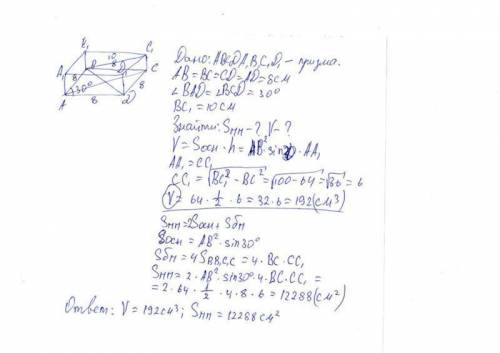 B₁ C₁
A₁ 8 B 10 D₁ C
30° 8
A 8 D
Дано: ABCDA₁B₁C₁D₁ - призма.
AB=BC=CD=AD=8см
∠BAD=∠BCD=30°
BC₁=10см
Знайти: Sпп-?, V-?
V=Sосн·h=AB²·sin30·AA₁
AA₁=CC₁
CC₁=√BC₁²-BC²=√100-64=√36=6
V=64·1/2·6=32·6=192(см³)
Sпп=2Sосн+Sбп
Sосн=AB²·sin30°
Sбп=4SBB₁C₁C=4·BC·CC₁
Sпп=2·AB²·sin30°·4·BC·CC₁=
=2·64·1/2·4·8·6=12288(см²)
Ответ: V=192см³; Sпп=12288см²